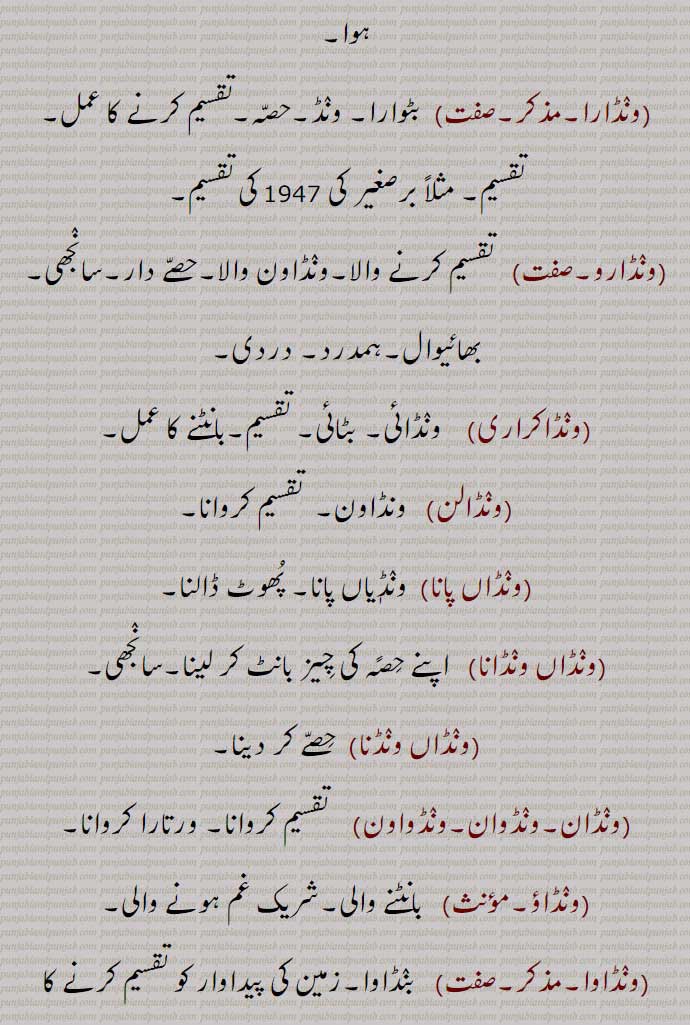 ہوا۔
(ونْڈارا۔مذکر۔صفت) بٹوارا۔ ونْڈ۔حصّہ۔تقسیم کرنے کا عمل۔
تقسیم۔ مثلاً برصغیر کی 1947 کی تقسیم۔
(ونْڈارو۔صفت) تقسیم کرنے والا۔ونْڈاون والا۔حصّے دار۔سانْجھی۔
بھائیوال۔ہمدرد۔ دردی۔
(ونْڈاکراری) ونْڈائی۔ بٹائی۔ تقسیم۔بانٹنے کا عمل۔
(ونْڈالن) ونڈاون۔ تقسیم کروانا۔
(ونْڈاں پانا) ونْڈِیاں پانا۔ پُھوٹ ڈالنا۔
(ونْڈاں ونْڈانا) اپنے حِصّہ کی چِیز بانٹ کر لینا۔سانْجھی۔
(ونْڈاں ونْڈنا) حِصّے کر دینا۔
(ونْڈان۔ونْڈوان۔ونْڈواون) تقسیم کروانا۔ ورتارا کروانا۔
(ونْڈاؤ۔مؤنث) بانٹنے والی۔شریک غم ہونے والی۔
(ونْڈاوا۔مذکر۔صفت) بنْڈاوا۔زمین کی پیداوار کو تقسیم کرنے کا